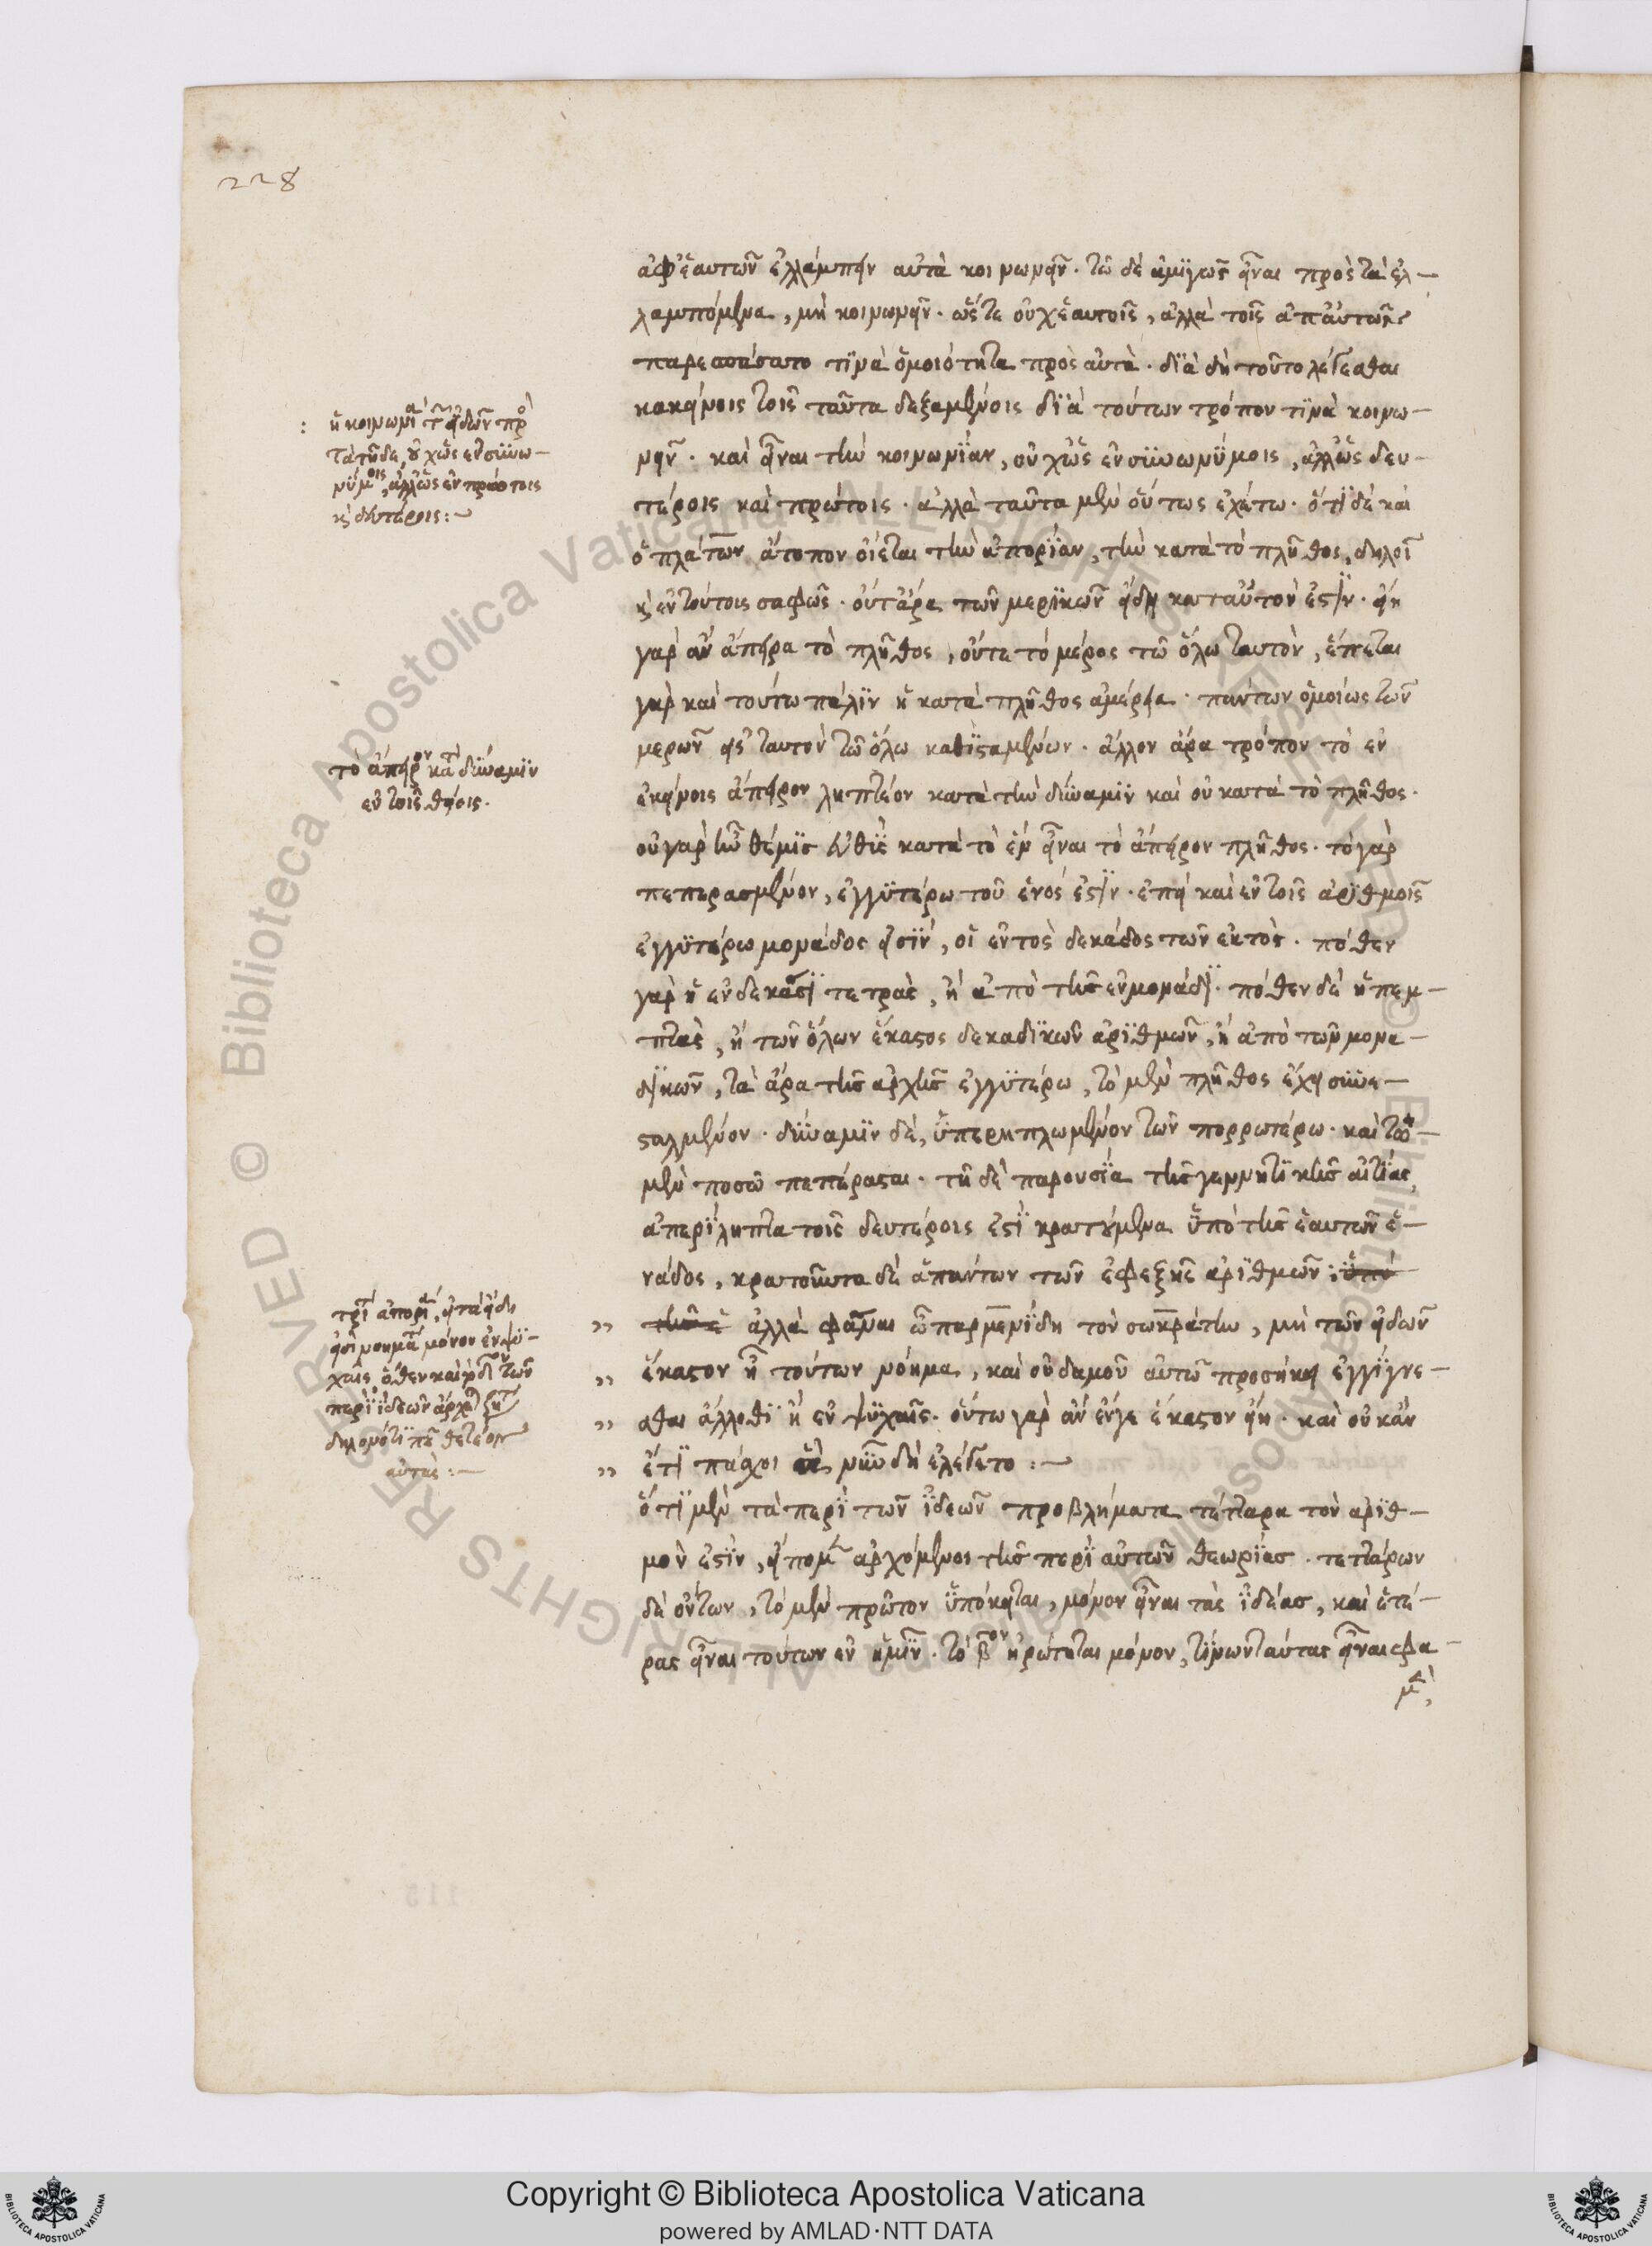 228
ἀφ' ἑαυτῶν ἐλλάμπειν αὐτὰ κοινωνεῖν. τῷ δὲ ἀμιγῶς εἶναι πρὸς τὰ ἐλ-
λαμπόμενα, μὴ κοινωνεῖν. ὥστε οὐχ ἑαυτοῖς, ἀλλὰ τοῖς ἀπ' αὐτῶν
τινὰ ὁμοιότητα πρὸς αὐτά. διὰ δὴ τοῦτο λέγεσθαι
κἀκείνοις τοῖς ταῦτα δεξαμένοις διὰ τούτων τρόπον τινὰ κοινω-
νεῖν. καὶ εἶναι τὴν κοινωνίαν, οὐχ ὡς ἐν συνωνύμοις, ἀλλ' ὡς δευ-
τέροις καὶ πρώτοις. ἀλλὰ ταῦτα μὲν οὕτως ἐχέτω. ὅτι δὲ καὶ
ὁ πλάτων ἄτοπον οἴεται τὴν ἀπορίαν, τὴν κατὰ τὸ πλῆθος, δηλοῖ
καὶ ἐν τούτοις σαφῶς. οὔτ' ἄρα τῶν μερικῶν εἴδη κατ' αὐτὸν ἐστὶν. εἴη
γὰρ ἂν ἄπειρα τὸ πλῆθος, οὔτε τὸ μέρος τῷ ὅλῳ ταυτὸν, ἕπεται
γὰρ καὶ τούτῳ πάλιν ἡ κατὰ πλῆθος ἀπειρία. πάντων ὁμοίως τῶν
μερῶν εἰς ταυτὸν τῷ ὅλῳ καθισταμένων. ἄλλον ἄρα τρόπον τὸ ἐν
ἐκείνοις ἄπειρον ληπτέον κατὰ τὴν δύναμιν καὶ οὐ κατὰ τὸ πλῆθος.
οὐ γὰρ ἦν θέμις εὐθὺς κατὰ τὸ ἓν εἶναι τὸ ἄπειρον πλῆθος. τὸ γὰρ
πεπερασμένον, ἐγγυτέρω τοῦ ἑνός ἐστιν. ἐπεὶ καὶ ἐν τοῖς ἀριθμοῖς
ἐγγυτέρω μονάδος εἰσὶν, οἱ ἐντὸς δεκάδος τῶν ἐκτὸς. πόθεν
γὰρ ἡ ἐν δεκάσι τετρὰς, ἢ ἀπὸ τῆς ἐν μονάδι. πόθεν δὲ ἡ πεμ-
πτὰς, ἢ τῶν ὅλων ἕκαστος δεκαδικῶν ἀριθμῶν, ἢ ἀπὸ τῶν μονα-
δικῶν, τὰ ἄρα τῆς ἀρχῆς ἐγγυτέρω, τὸ μὲν πλῆθος ἔχει συνε-
σταλμένον. δύναμιν δὲ, ὑπερηπλωμένον τῶν πορρωτέρω. καὶ τῷ
μὲν ποσῷ πεπέρασται. τῇ δὲ παρουσίᾳ τῆς γεννητικῆς αἰτίας
ἀπερίληπτα τοῖς δευτέροις ἐστὶ κρατούμενα ὑπὸ τῆς ἑαυτῶν ἑ-
νάδος, κρατοῦντα δὲ ἁπάντων τῶν ἐφεξῆς ἀριθμῶν: ὑπὸ
τῆς ἑ ἀλλὰ φάναι ὦ παρμενίδη τὸν σωκράτην, μὴ τῶν εἰδῶν
ἕκαστον ᾖ τούτων νόημα, καὶ οὐδαμοῦ αὐτῷ προσήκει ἐγγίγνε-
σθαι ἄλλοθι ἢ ἐν ψυχαῖς. οὕτω γὰρ ἂν ἕν γε ἕκαστον εἴη. καὶ οὐκ ἂν
ἔτι πάσχοι ἃ νῦν δὴ ἐλέγετο:
ὅτι μὲν τὰ περὶ τῶν ἰδεῶν προβλήματα τέτταρα τὸν ἀριθ-
μὸν ἐστὶν, εἴπομεν ἀρχόμενοι τῆς περὶ αὐτῶν θεωρίας. τεττάρων
δὲ ὄντων, τὸ μὲν πρῶτον ὑπόκειται, μόνον εἶναι τὰς ἰδέας, καὶ ἑτέ-
ρας εἶναι τούτων ἐν ἡμῖν. τὸ βον ἠρώτηται μόνον, τίνων ταύτας εἶναι φα
μὲν
ἡ κοινωνία τῶν εἰδῶν πρὸς
τὰ τῇδε, οὐχ ὡς ἐν συνω-
νύμοις, ἀλλ' ὡς ἐν πρώτοις
καὶ δευτέροις:
τὸ ἄπειρον κατὰ δύναμιν
ἐν τοῖς θείοις.
τρίτη ἀπορία, εἰ τὰ εἴδη
εἰσὶ νοήματα μόνον ἐν ψυ-
χαῖς ὅθεν καὶ τῶν
περὶ ἰδεῶν
δηλονότι θετέον
αὐτὰς: